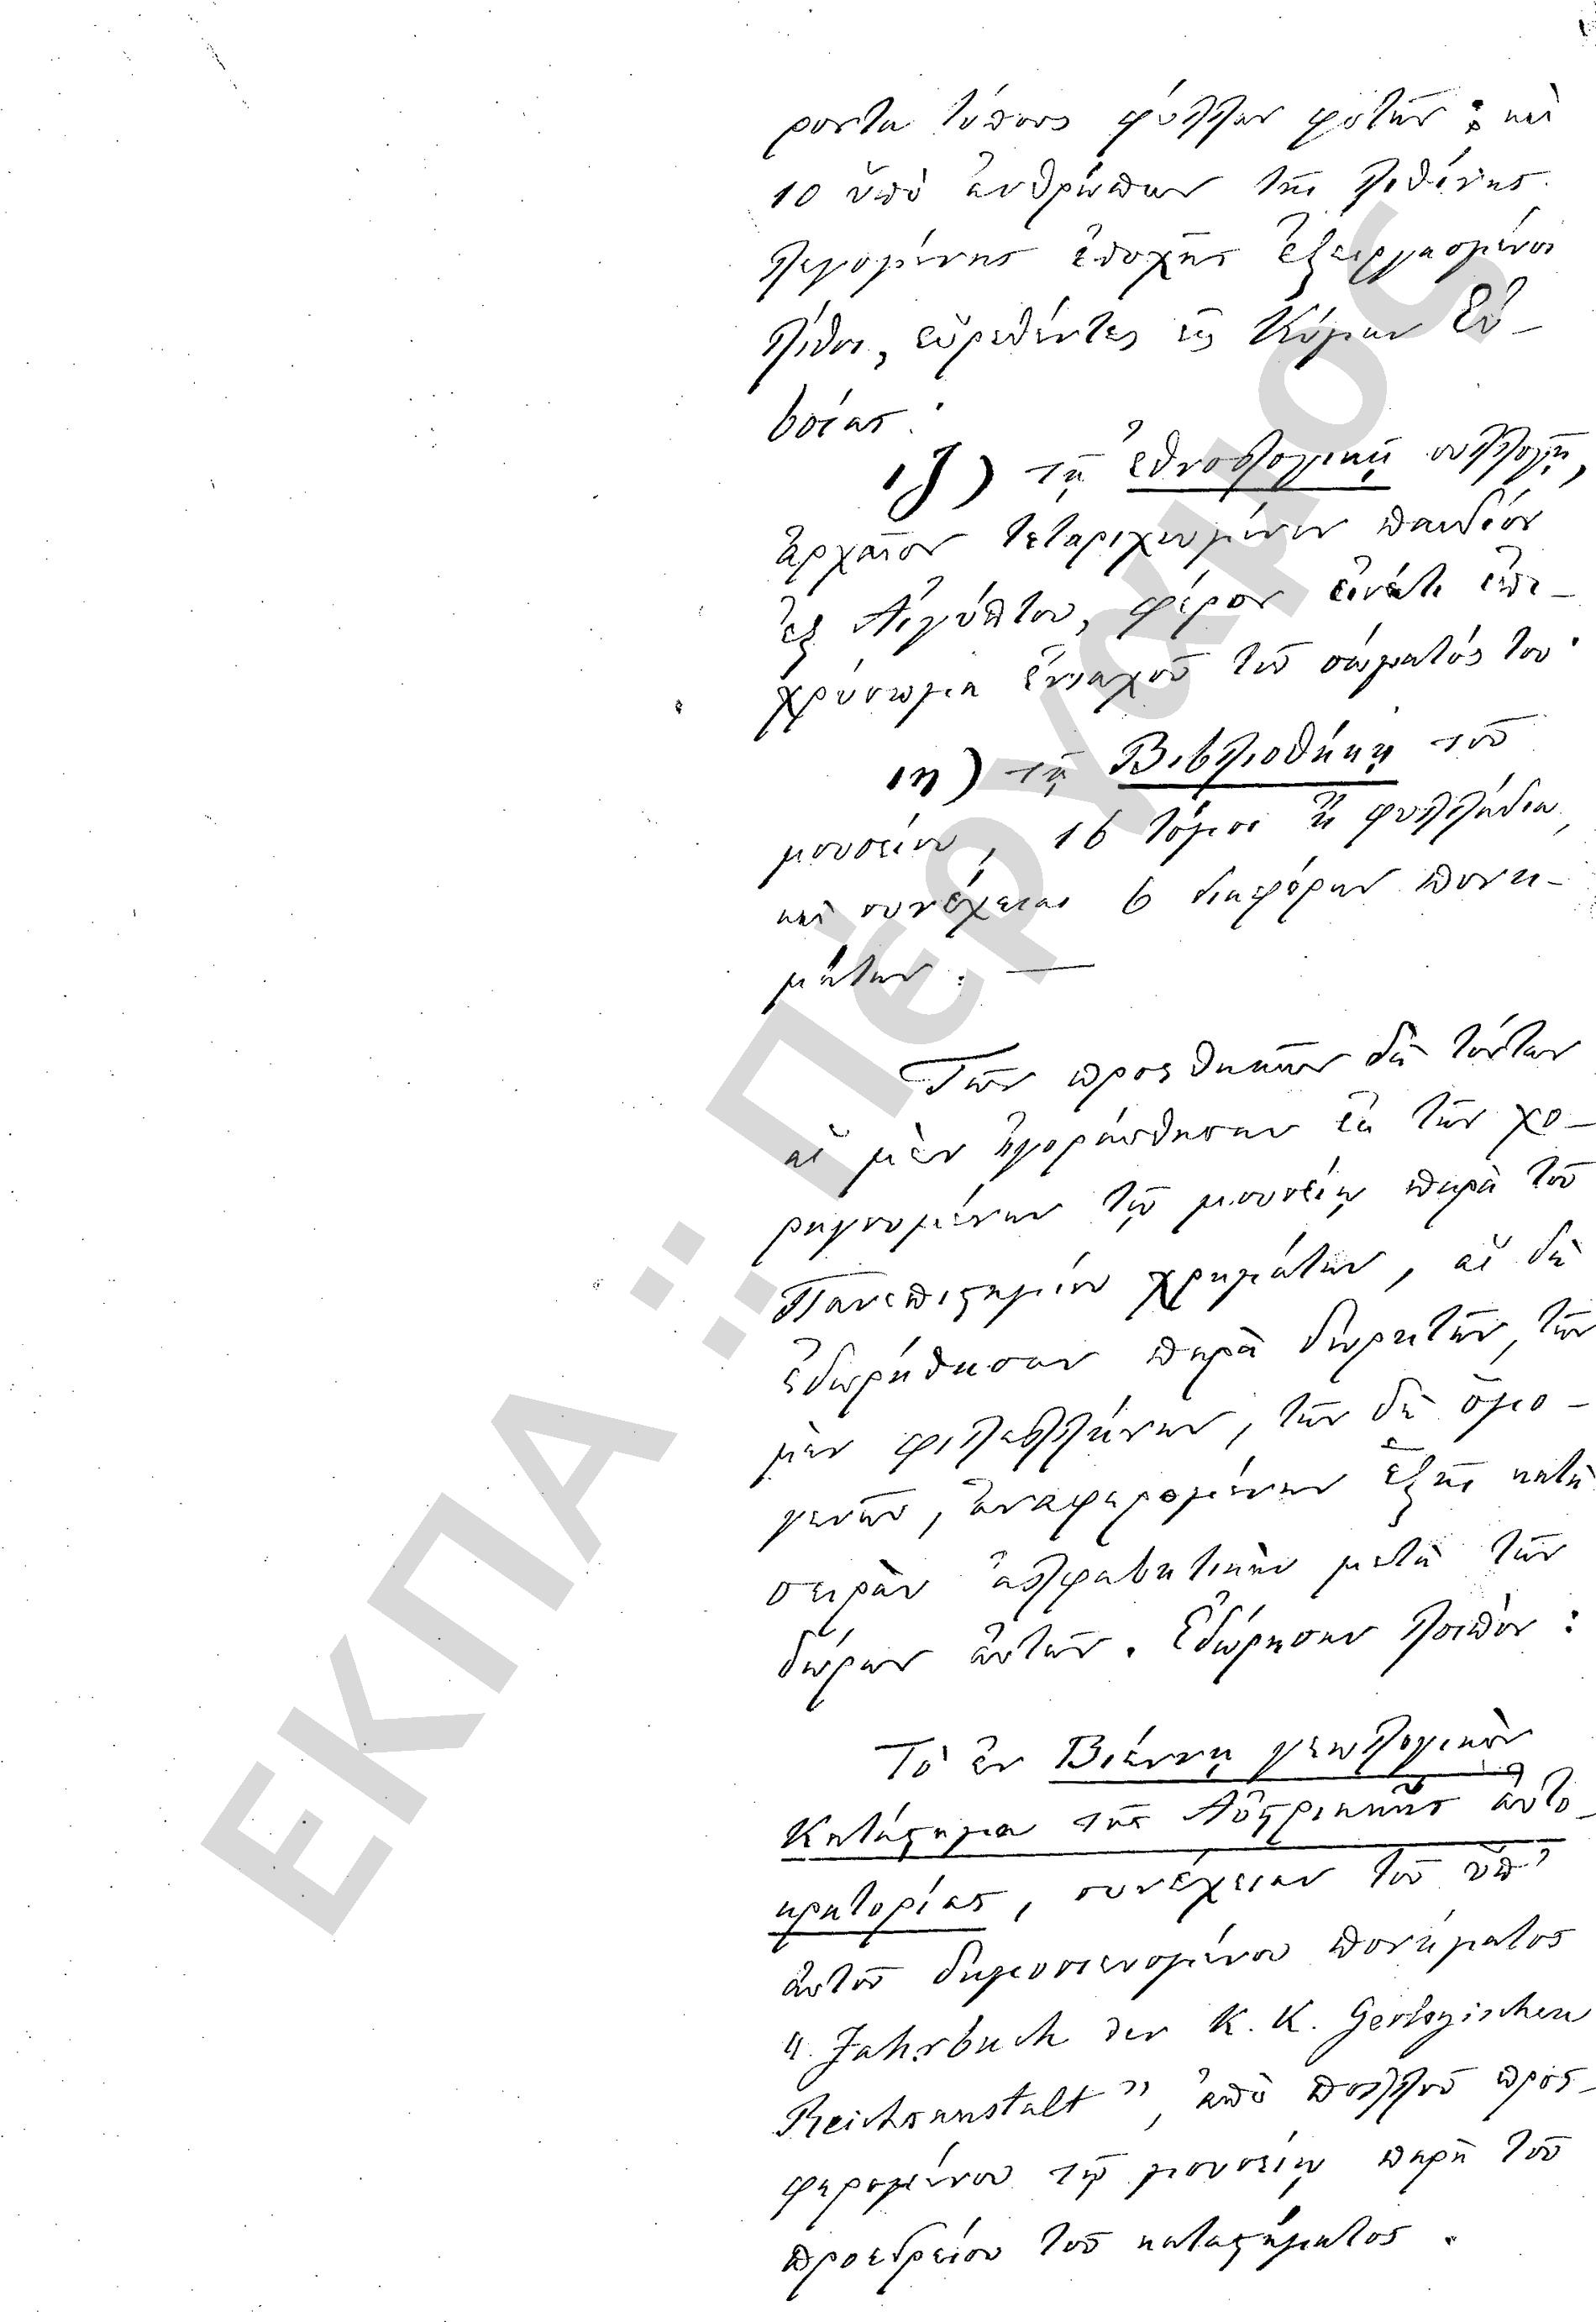 ροντα τύπους φύλλων φυτῶν· καὶ
10 ὑπὸ ἀνθρώπων τῆς λιθίνης
λεγομένης ἐποχῆς ἐξειργασμένοι
λίθοι, εὑρεθέντες εἰς Κύμην Εὐ-
βοίας·
ιζ) τῇ ἐθνολογικῇ συλλογῇ,
ἀρχαῖον τεταριχευμένον παιδίον
ἐξ Αἰγύπτου, φέρον ἔτι ἐπι-
χρύσωμα ἐνιαχοῦ τοῦ σώματός του·
ιη) τῇ Βιβλιοθήκῃ τοῦ
μουσείου, 16 τόμοι ἢ φυλλάδια,
καὶ συνέχειαι 6 διαφόρων πονη-
μάτων. —
Τῶν προσθηκῶν δὲ τούτων
αἱ μὲν ἠγοράσθησαν ἐκ τῶν χο-
ρηγουμένων τῷ μουσείῳ παρὰ τοῦ
Πανεπιςημίου χρημάτων, αἱ δὲ
ἐδωρήθησαν παρὰ δωρητῶν, τῶν
μὲν φιλελλήνων, τῶν δὲ ὁμο-
γενῶν, ἀναφερομένων ἑξῆς κατὰ
σειρὰν ἀλφαβητικὴν μετὰ τῶν
δώρων αὐτῶν. Ἐδώρησαν λοιπὸν:
Τὸ ἐν Βιέννῃ γεωλογικὸν
Κατάςημα τῆς Αὐςριακῆς αὐτο-
κρατορίας, συνέχειαν τοῦ ὑπ'
αὐτοῦ δημοσιευομένου πονήματος
"Jahrbuch der K. K. Geologischen
Reichsanstalt", ἀπὸ πολλοῦ προσ-
φερομένου τῷ μουσείῳ παρὰ τοῦ
προεδρείου τοῦ καταςήματος.
ΕΚΠΑ :: Πέργαμος